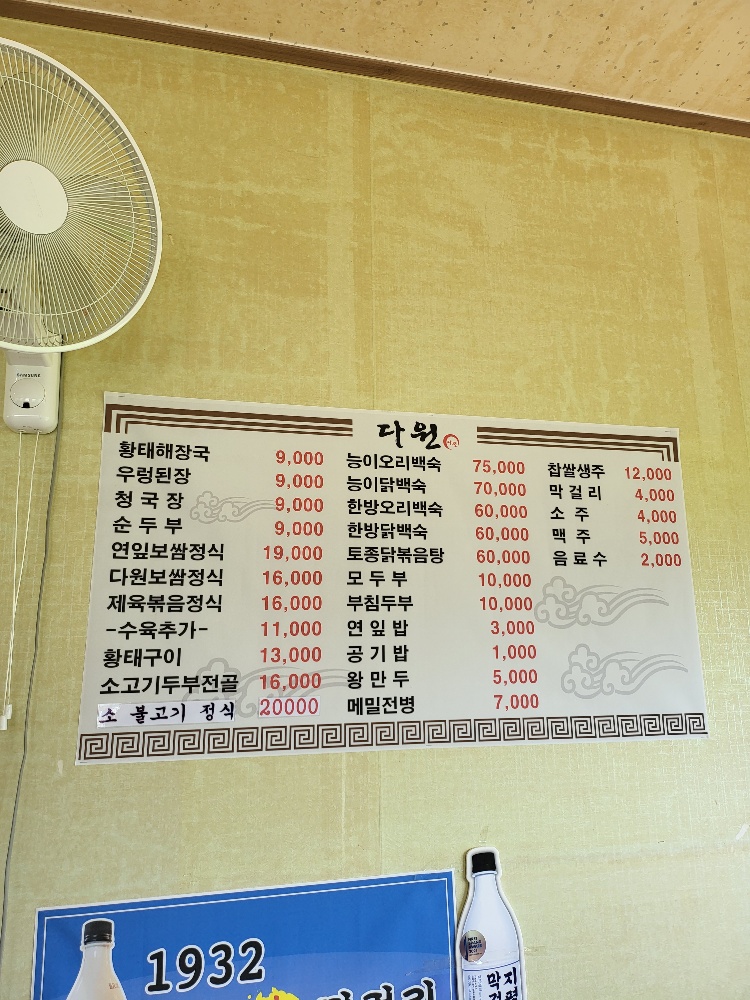 SAMSUNG
다원
황태해장국 9,000
우렁된장 9,000
청국장 9,000
순두부 9,000
연잎보쌈정식 19,000
다원보쌈정식 16,000
제육볶음정식 16,000
-수육추가- 11,000
황태구이 13,000
소고기두부전골 16,000
소 불고기 정식 20000
능이오리백숙 75,000
능이닭백숙 70,000
한방오리백숙 60,000
한방닭백숙 60,000
토종닭볶음탕 60,000
모두부 10,000
부침두부 10,000
연잎밥 3,000
공기밥 1,000
왕만두 5,000
메밀전병 7,000
찹쌀생주 12,000
막걸리 4,000
소주 4,000
맥주 5,000
음료수 2,000
1932